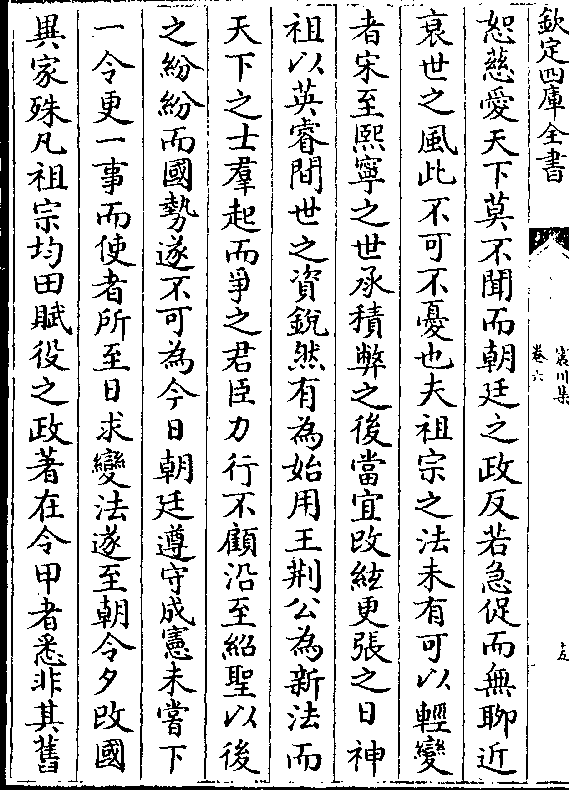 欽定四庫全書
震川集
卷六
十五
恕慈愛天下莫不聞而朝廷之政反若急促而無聊近
衰世之風此不可不憂也夫祖宗之法未有可以輕變
者宋至熙寧之世承積弊之後當宜改絃更張之日神
祖以英睿間世之資銳然有為始用王荆公為新法而
天下之士羣起而爭之君臣力行不顧沿至紹聖以後
之紛紛而國勢遂不可為今日朝廷遵守成憲未嘗下
一令更一事而使者所至日求變法遂至朝令夕改國
異家殊凡祖宗均田賦役之政著在令甲者悉非其舊